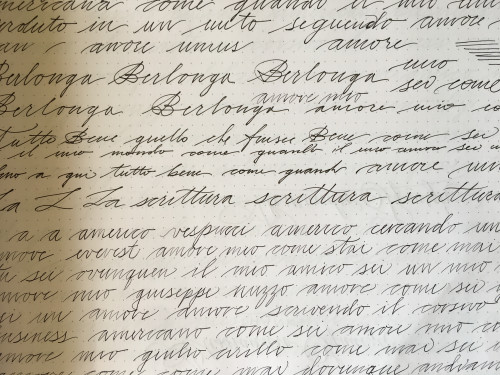 americana come quando il mio am
perduto in un mito seguendo amore
amore unus amore
mio
Berlonga Berlonga Berlonga sei come
amore mio
Berlonga Berlonga amore mio co
Tutto Bene quello che finisce Bene come sei
il mio mondo come quando il mio amor sei u
fino a qui tutto bene come quando amore um
La L La scrittura scrittura scrittura
a a americo vespucci americo cercando un
amore everest amore mio come stai come mai
tu sei ovunque il mio amico sei un mio
amore mio giuseppe nuzzo amore come sei
sei un amore amore scrivendo il corsivo
business americano come sei amore mio co
amore mio giulio cirillo come mai sei
come come come mai dovunque andiam